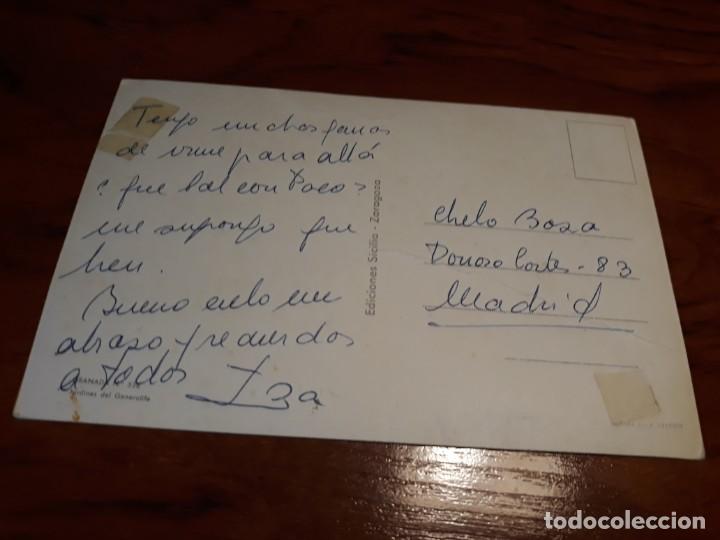 Tengo muchas ganas
de irme para allá
¿ que tal con Paco ?
me supongo que
bien.
Bueno chelo un
abrazo y recuerdos
a todos
Iza
GRANADA
Jardines del Generalife
Ediciones Sicilia - Zaragoza
chelo Boza
Donoso Cortes - 83
Madrid
todocoleccion